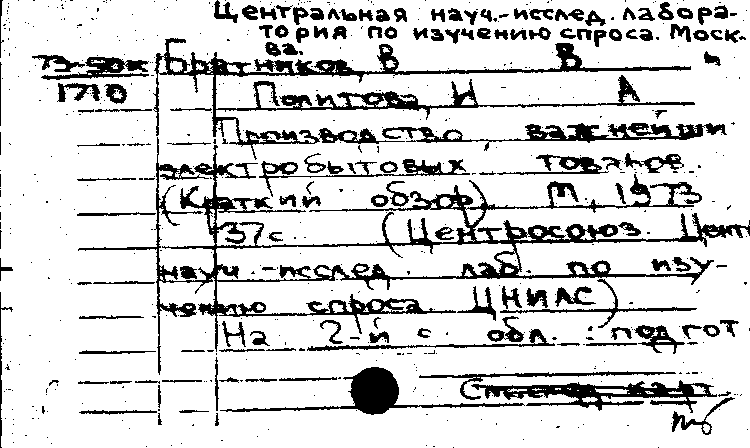 Центральная науч.-исслед. лабора-
тория по изучению спроса. Моск-
ва.
73-50к Братников, В В
1710 Политова, И А
Производство важнейши
электробытовых товаров.
(Краткий обзор). М., 1973
37с. (Центросоюз. Цент
науч.-исслед. лаб. по изу-
чению спроса ЦНИЛС).
На 2-й с. обл.: подгот